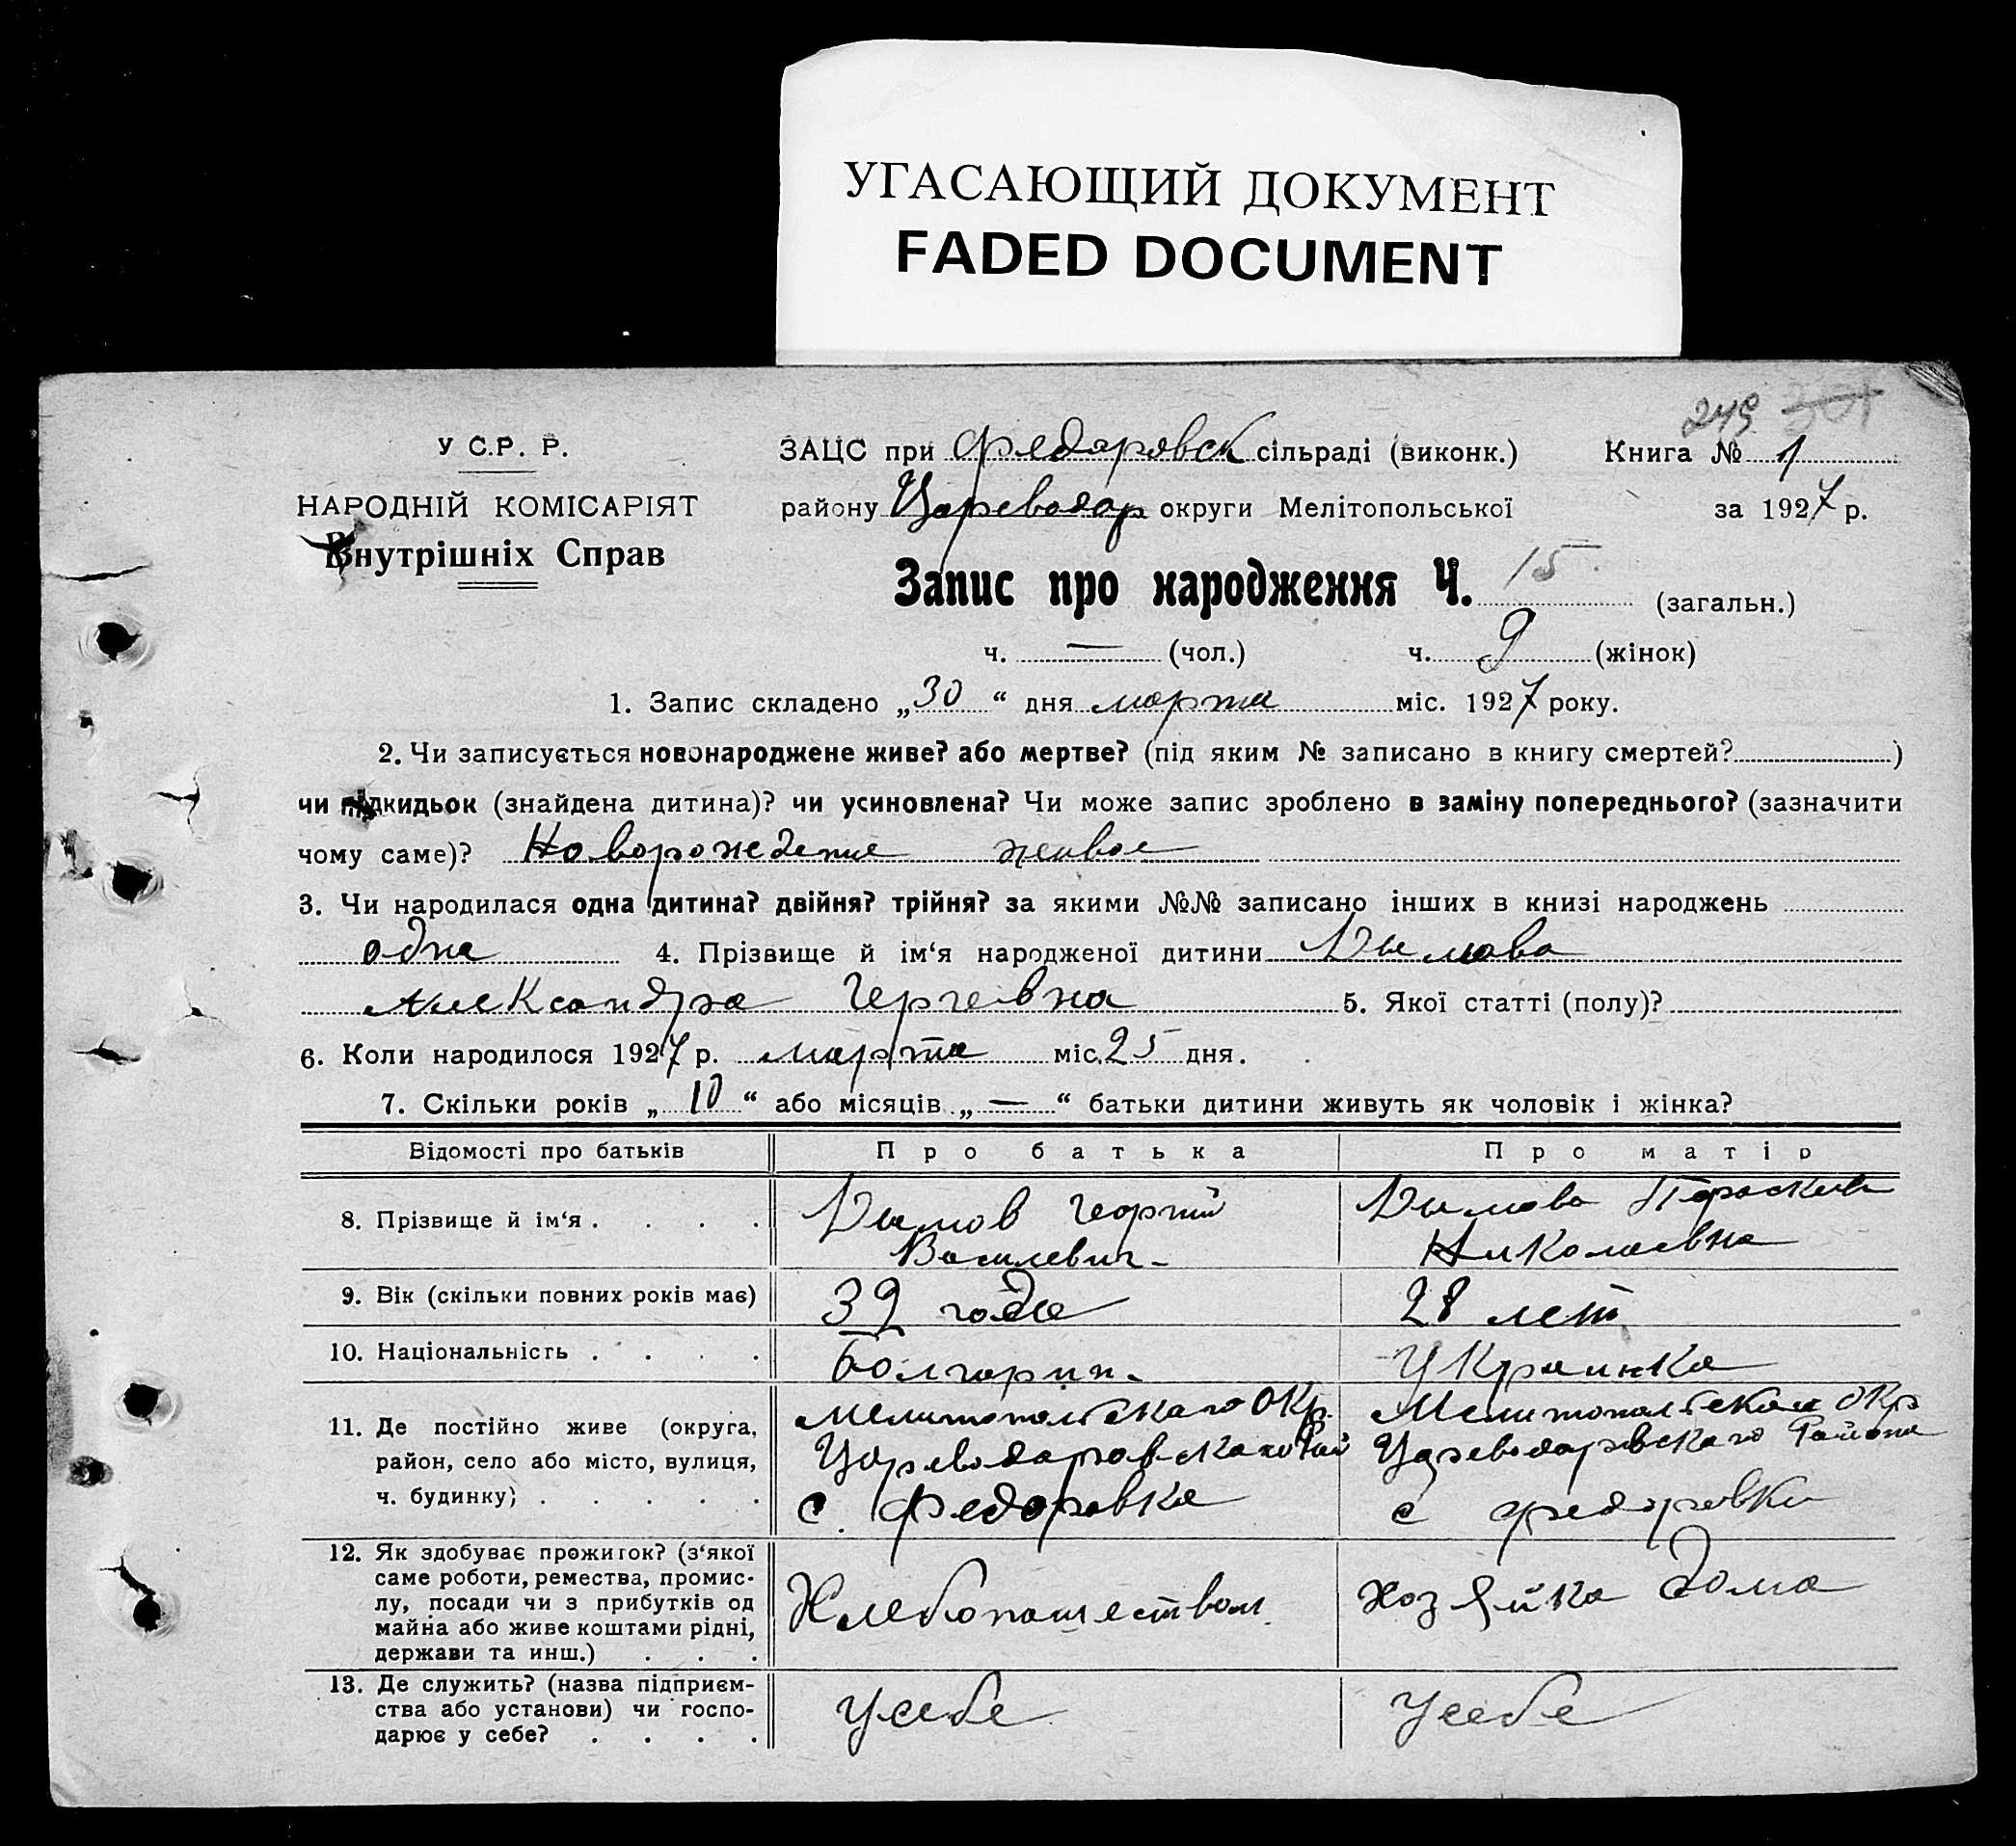 УГАСАЮЩИЙ ДОКУМЕНТ
FADED DOCUMENT
249 301
У С.Р. Р.
ЗАЦС при Федоровск сільраді (виконк.)
Книга № 1
НАРОДНІЙ КОМІСАРІЯТ
району Цареводар округи Мелітопольської
за 1927 р.
Внутрішніх Справ
Запис про народження Ч. 15. (загальн.)
ч. — (чол.) ч. 9 (жінок)
1. Запис складено „30“ дня марта міс. 1927 року.
2. Чи записується новонароджене живе? або мертве? (під яким № записано в книгу смертей? )
чи підкидьок (знайдена дитина)? чи усиновлена? Чи може запис зроблено в заміну попереднього? (зазначити
чому саме)? Новорождение живое
3. Чи народилася одна дитина? двійня? трійня? за якими №№ записано інших в книзі народжень
одна 4. Прізвище й ім‘я народженої дитини Дымова
Александра Гергевна 5. Якої статті (полу)?
6. Коли народилося 1927 р. марта міс. 25 дня.
7. Скільки років „10“ або місяців „—“ батьки дитини живуть як чоловік і жінка?
Відомості про батьків Про батька Про матір
8. Прізвище й ім‘я . . . . Дымов Георгий Дымова Параскева
Василевич - Николаевна
9. Вік (скільки повних років має) 32 года 28 лет
10. Національність . . . . Болгарин - Украинка
11. Де постійно живе (округа, Мелитопольскаго Окр. Мелитопольскаго Окр
район, село або місто, вулиця, Цареводаровскаго Рай Цареводаровскаго Района
ч. будинку) . . . . . с. Федоровка с Федоровки
12. Як здобуває прожиток? (з‘якої
саме роботи, ремества, промис-
лу, посади чи з прибутків од Хлебопашеством хозяйка дома
майна або живе коштами рідні,
держави та инш.) . . .
13. Де служить? (назва підприєм-
ства або установи) чи госпо- У себе У себе
дарює у себе? . . . .